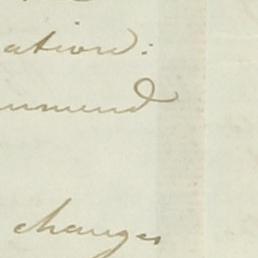 ation:
ommend
changes